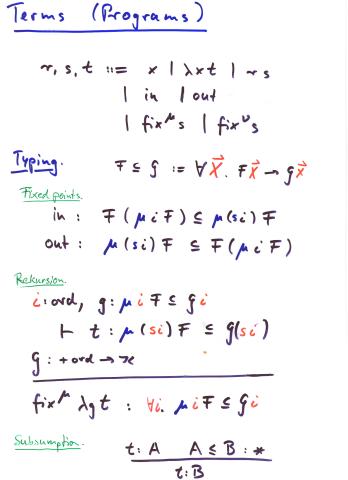 Terms (Programs)
r, s, t ::= x | λxt | rs
| in | out
| fix^μ s | fix^ν s
Typing. F ⊆ G := ∀X⃗. FX⃗ → GX⃗
Fixed points.
in : F(μ i F) ⊆ μ(si) F
out : μ(si) F ⊆ F(μ i F)
Rekursion.
i:ord, g: μ i F ⊆ G i
⊢ t : μ(si) F ⊆ G(si)
G : +ord → κ
fix^μ λgt : ∀i. μ i F ⊆ G i
Subsumption.
t: A A ≤ B : *
t: B